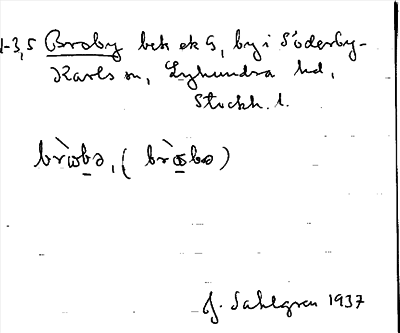 1-3,5 Broby beb ek G, by i Söderby-
Karls sn, Lyhundra hd,
Stockh. l.
brὼbə, (
J. Sahlgren 1937